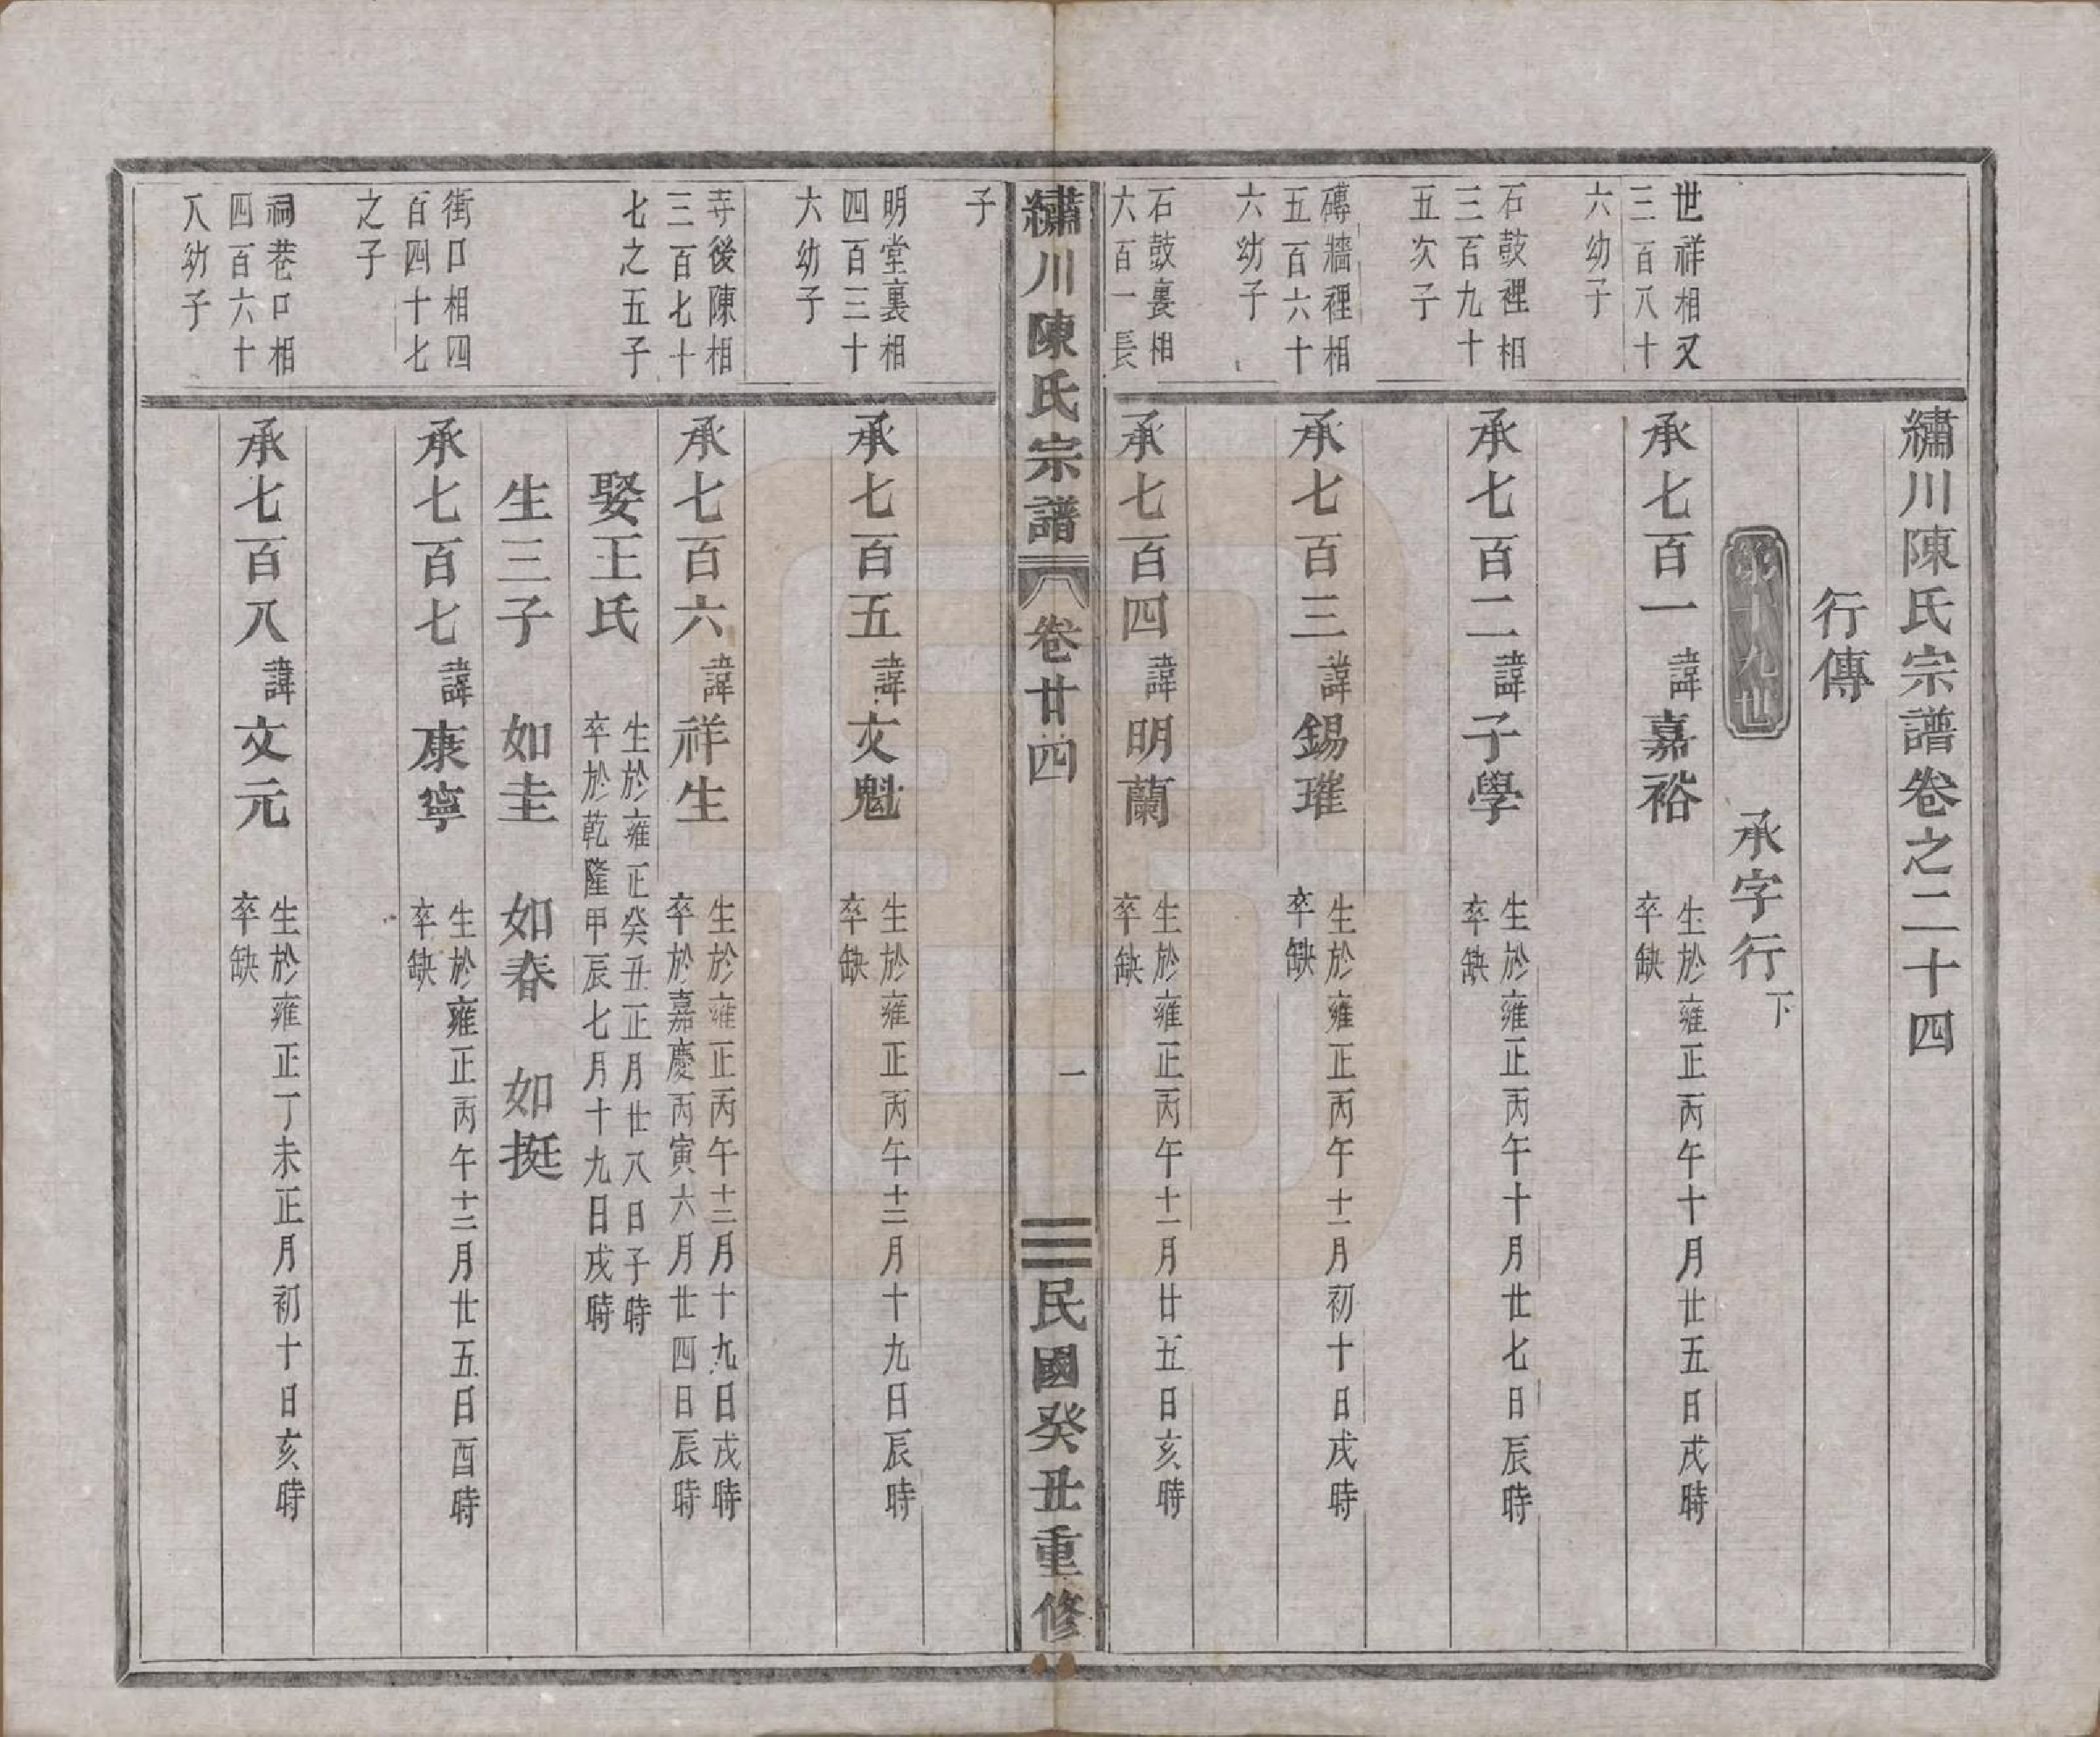 繡川陳氏宗譜卷之二十四
行傳
第十九世
承字行下
世祥相又
三百八十
六幼子
承七百一 諱嘉裕
生於雍正丙午十月廿五日戌時
卒缺
石鼓裡相
三百九十
五次子
承七百二 諱子學
生於雍正丙午十月廿七日辰時
卒缺
磚牆裡相
五百六十
六幼子
承七百三 諱錫璀
生於雍正丙午十一月初十日戌時
卒缺
石鼓裏相
六百一長
子
承七百四 諱明蘭
生於雍正丙午十一月廿五日亥時
卒缺
繡川陳氏宗譜 卷廿四 一 民國癸丑重修
明堂裏相
四百三十
六幼子
承七百五 諱文魁
生於雍正丙午十二月十九日辰時
卒缺
寺後陳相
三百七十
七之五子
承七百六 諱祥生
生於雍正丙午十二月十九日戌時
卒於嘉慶丙寅六月廿四日辰時
娶王氏
生於雍正癸丑正月廿八日子時
卒於乾隆甲辰七月十九日戌時
生三子 如圭 如春 如挺
街口相四
百四十七
之子
承七百七 諱康寧
生於雍正丙午十二月廿五日酉時
卒缺
祠巷口相
四百六十
八幼子
承七百八 諱文元
生於雍正丁未正月初十日亥時
卒缺